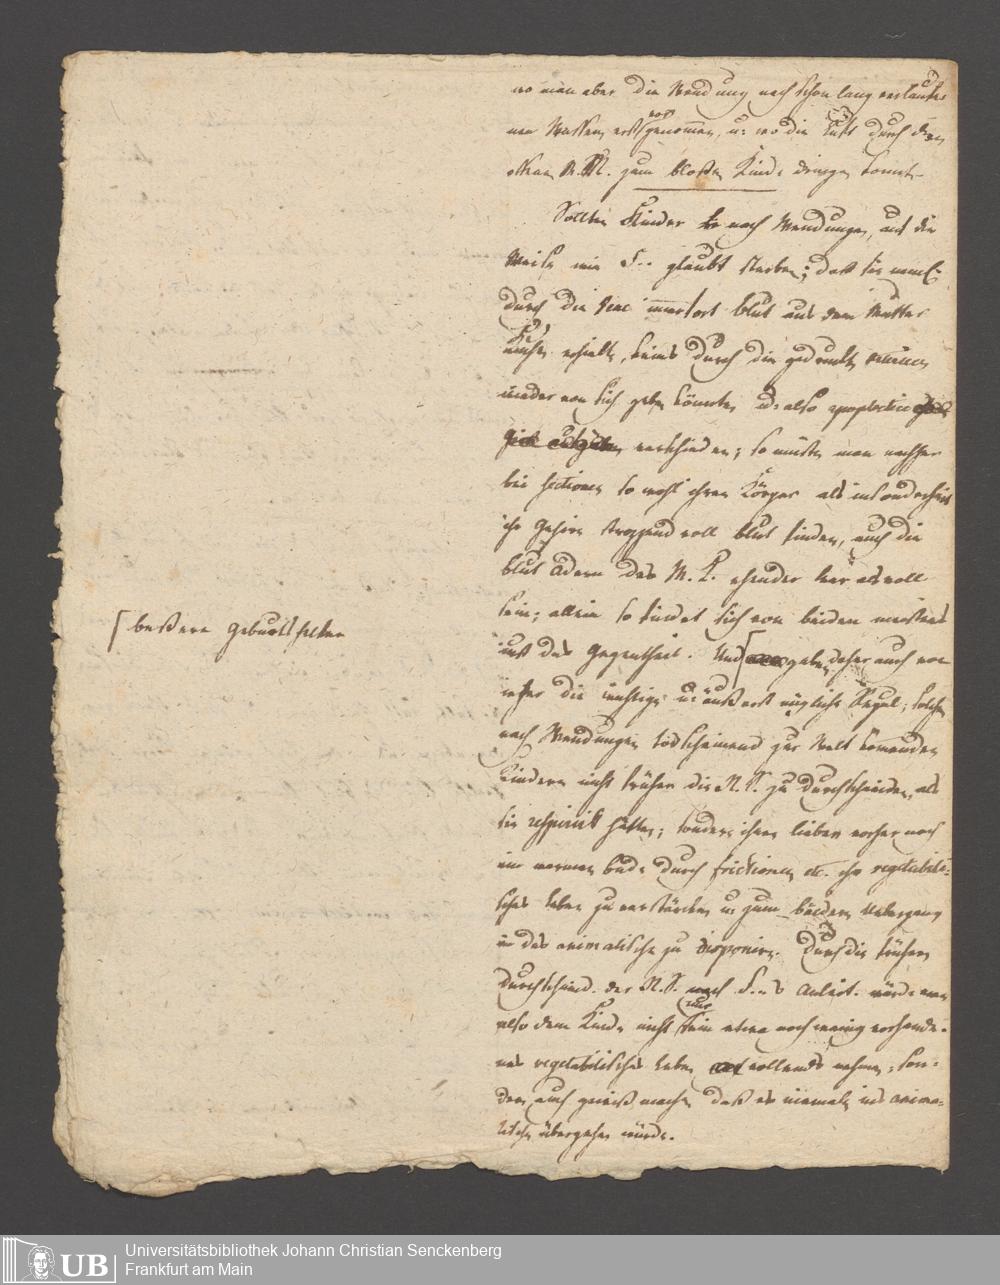 wo man aber die Wendung nach schon lang verlaufe-
nen Wassern erst vorgenommen, u: wo die Luft durch den
offnen M. M. zum bloßen Kinde dringen konnte.
Sollten Kinder nach Wendungen, auf die
Weise wie S.. glaubt sterben; daß sie neml.
durch die vene immerfort blut aus dem Mutter
kuchen erhielten, keins durch die gedruckten
wieder von sich geben könnten u: also apoplectice
verschieden; so müste man nachher
bei sectionen so wohl ihren Körper als insonderheit
ihr Gehirn strozzend voll blut finden, auch die
blut Adern des M. K. ehender leer als voll
sein; allein so findet sich von beiden meistens
just das Gegentheil. Und geben daher auch
die wichtige u: äußerst nüzliche Regel, solchen
nach Wendungen todscheinend zur Welt komenden
Kindern nicht früher die N. S. zu durchschneiden, als
sie respirirt hätten; sondern ihnen lieber vorher noch
im warmen bade durch frictionen etc. ihr vegetabili-
sches leben zu verstärken u: zum Uebergang
in das animalische zu disponiren. Durch die frühere
durchschneid. der N. S. nach S..s Anleit. würde man
also dem Kinde nicht nur sein etwa noch wenig vorhande-
nes vegetabilisches leben vollends nehmen, son-
dern auch gewiß machen daß es niemals ins anima-
lische übergehen würde.
beßere Geburtshelfer
Universitätsbibliothek Johann Christian Senckenberg
Frankfurt am Main
UB